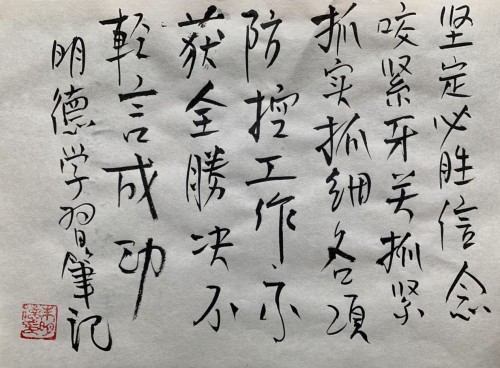 坚定必胜信念
咬紧牙关抓紧
抓实抓细各项
防控工作不
获全勝决不
輕言成功
明德学習筆记